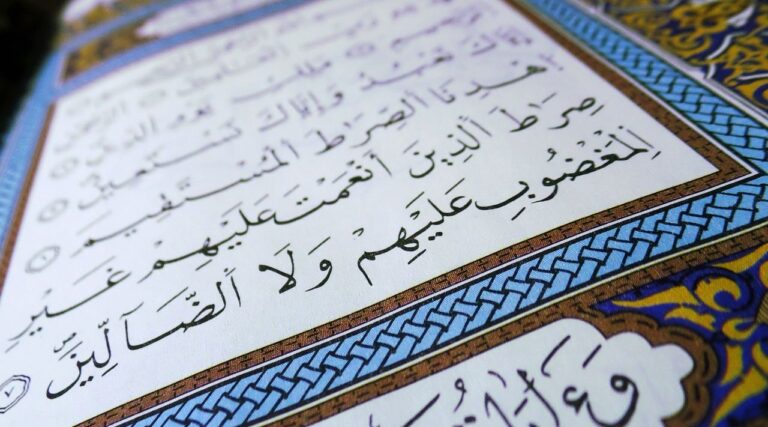 مَلِكِ يَوْمِ الدِّينِ
إِيَّاكَ نَعْبُدُ وَإِيَّاكَ نَسْتَعِينُ
اهْدِنَا ٱلصِّرَاطَ ٱلْمُسْتَقِيمَ
صِرَاطَ ٱلَّذِينَ أَنْعَمْتَ عَلَيْهِمْ غَيْرِ
ٱلْمَغْضُوبِ عَلَيْهِمْ وَلَا ٱلضَّآلِّينَ ٧